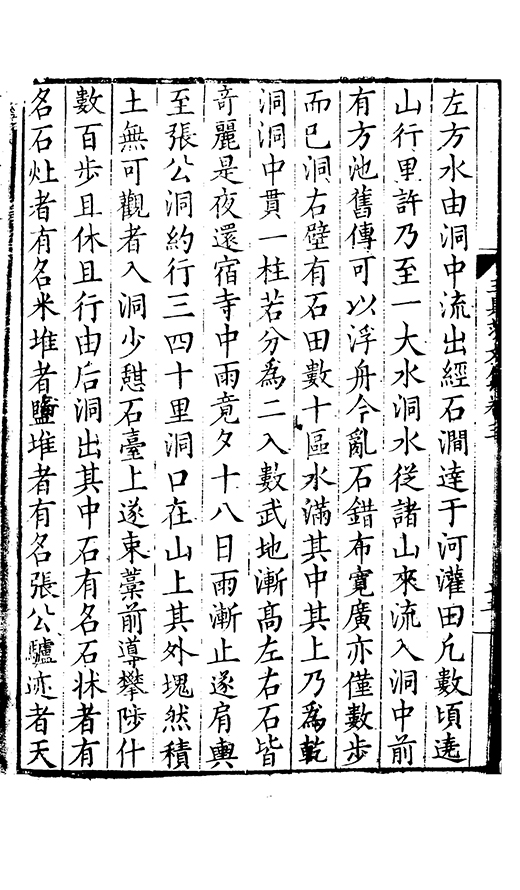 左方水由洞中流出經石澗達于河灌田凢數頃遶
山行里許乃至一大水洞水從諸山來流入洞中前
有方池舊傳可以浮舟今亂石錯布寛廣亦僅數歩
而已洞右壁有石田數十區水滿其中其上乃爲乾
洞洞中貫一柱若分爲二入數武地漸髙左右石皆
竒麗是夜還宿寺中雨竟夕十八日雨漸止遂肩輿
至張公洞約行三四十里洞口在山上其外塊然積
土無可觀者入洞少憩石臺上遂束藁前導攀陟什
數百歩且休且行由后洞出其中石有名石牀者有
名石灶者有名米堆者鹽堆者有名張公驢迹者天